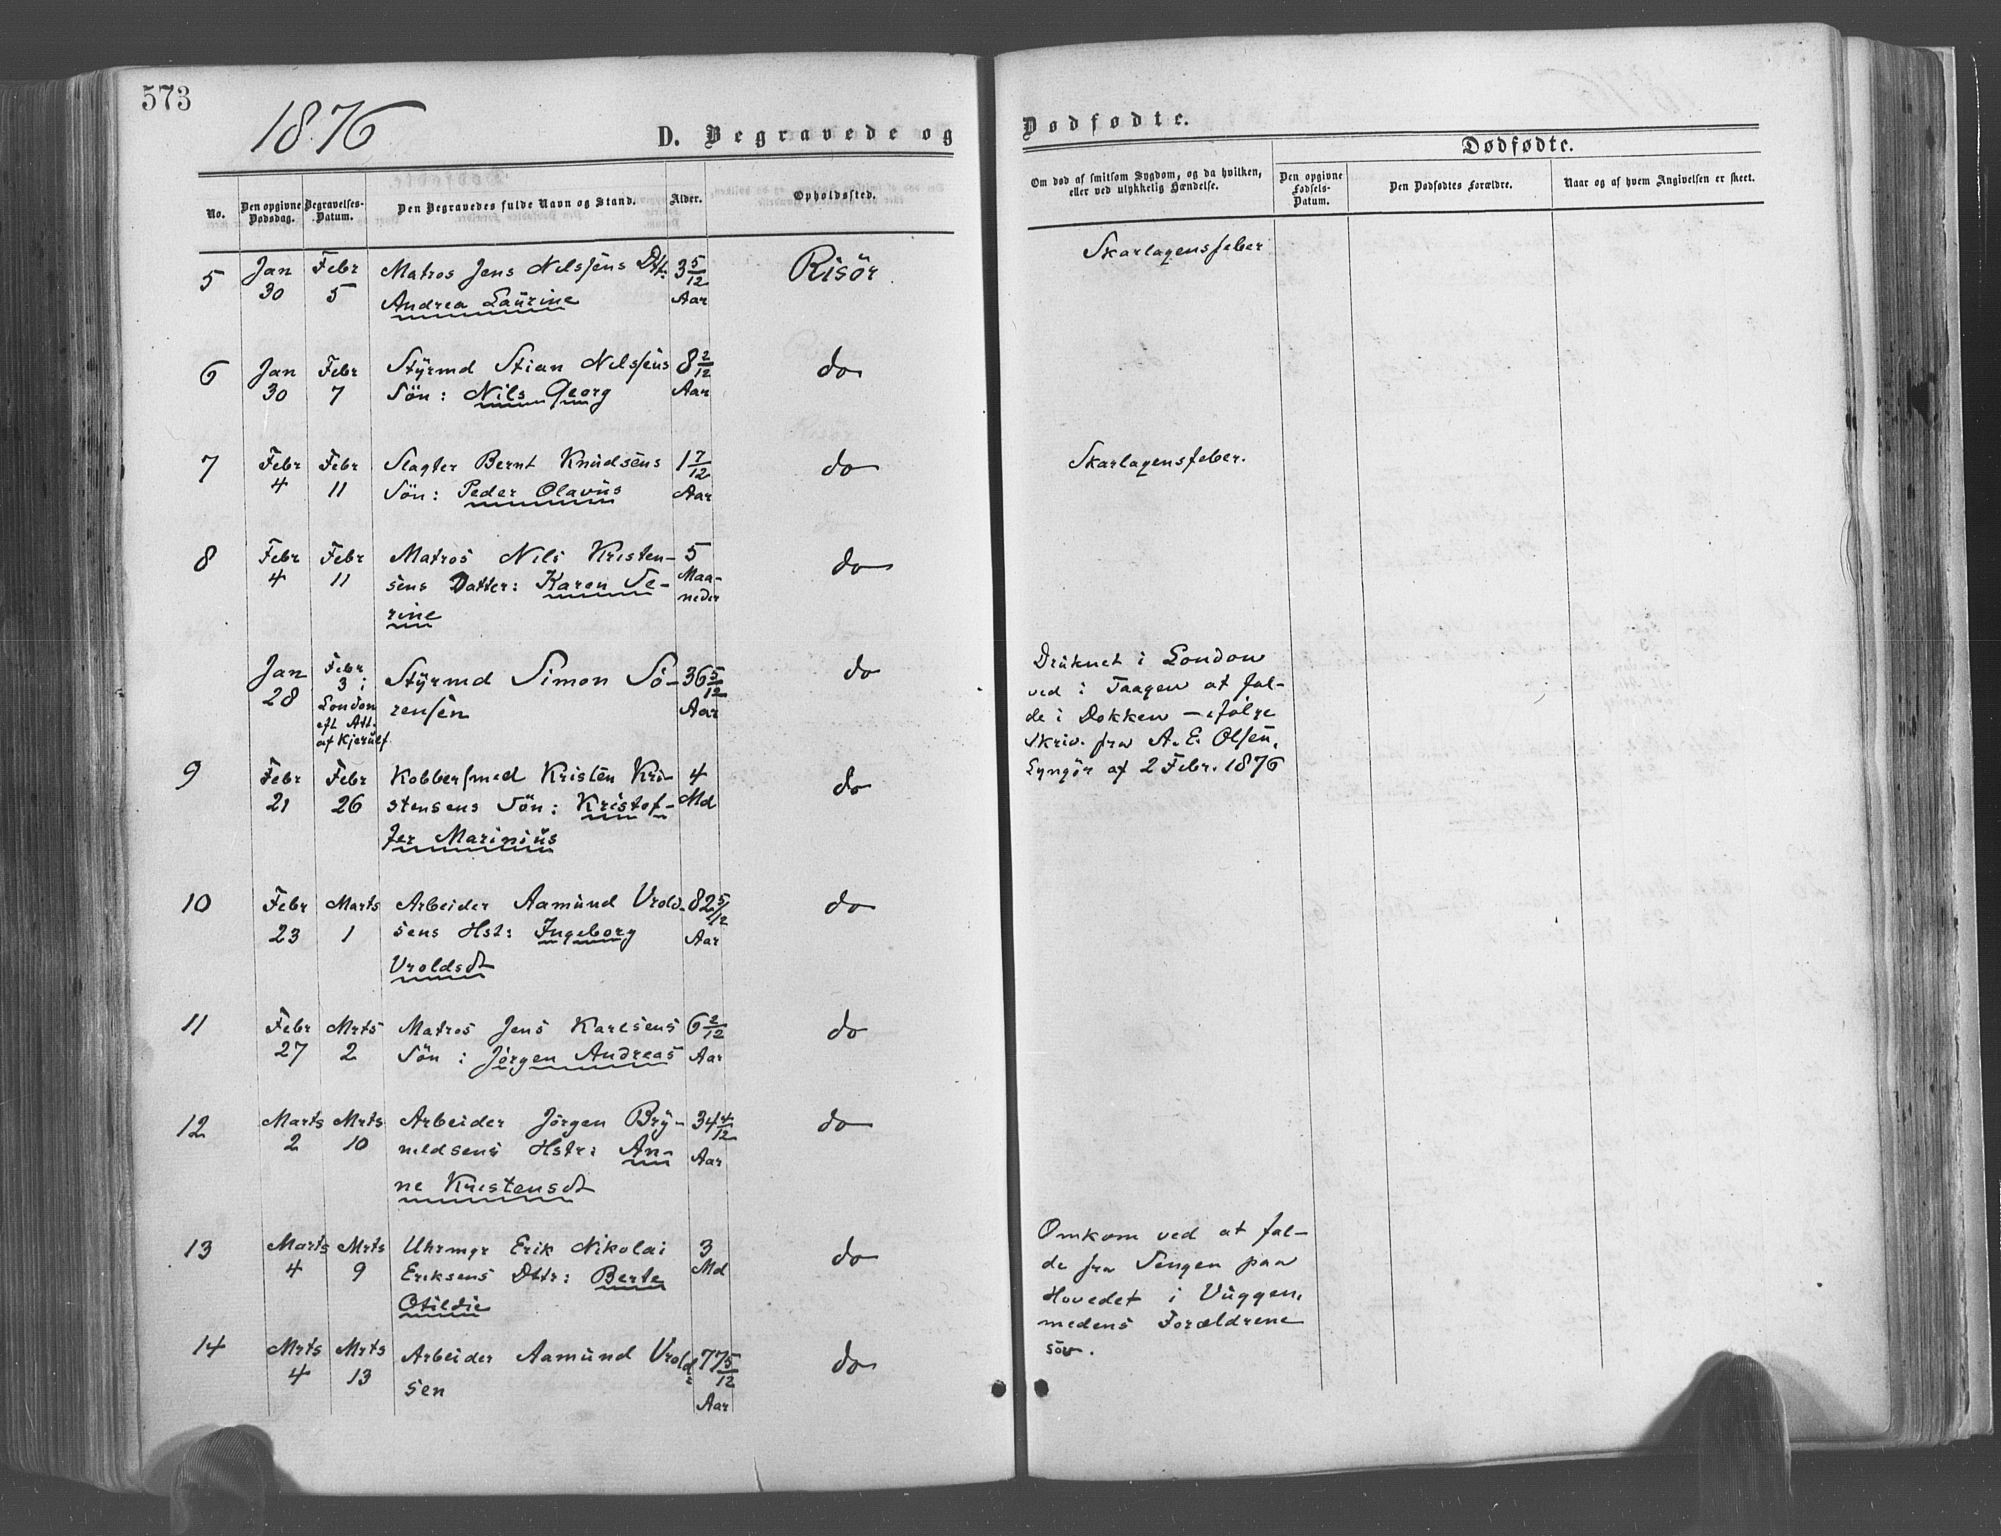 573
1876
D. Begravede og
Dødfødte.
No.
Den opgivne Dødsdag.
Begravelses-Datum.
Den Begravedes fulde Navn og Stand.
Alder.
Opholdssted.
Om død af smitsom Sygdom, og da hvilken,
eller ved ulykkelig Hændelse.
Dødfødte.
Den opgivne Fødsels-Datum.
Den Dødfødtes Forældre.
Naar og af hvem Angivelsen er skeet.
5 Jan 30 Febr 5 Matros Jens Nilssens Dtr: 3 5/12 Aar Risör Skarlagensfeber
Andrea Laurine
6 Jan 30 Febr 7 Styrmd Stian Nilssens 8 2/12 Aar do
Sön: Nils Georg
7 Febr 4 Febr 11 Slagter Bernt Knudsens 1 7/12 Aar do Skarlagensfeber.
Sön: Peder Olavus
8 Febr 4 Febr 11 Matros Nils Kristen- 5 Maa-neder do
sens Datter: Karen Se-
rine
Jan 28 Febr 3 i London eft Att. af Kjerulf Styrmd Simon Sö- 36 5/12 Aar do
rensen
Druknet i London
ved i Taagen at fal-
de i Dokken — ifølge
Skriv. fra A. E. Olsen,
Lyngör af 2 Febr. 1876
9 Febr 21 Febr 26 Kobbersmed Kristen Kri- 4 Md do
stensens Sön: Kristof-
fer Marinius
10 Febr 23 Marts 1 Arbeider Aamund Vrold- 82 5/12 Aar do
sens Hst: Ingeborg
Vroldsdt
11 Febr 27 Mrts 2 Matros Jens Karlsens 6 2/12 Aar do
Sön: Jörgen Andreas
12 Marts 2 Mrts 10 Arbeider Jörgen Bry- 34 4/12 Aar do
nildsens Hstr: An-
ne Kristensdt
13 Marts 4 Mrts 9 Uhrmgr Erik Nikolai 3 Md do
Eriksens Dttr: Berte
Otildie
Omkom ved at fal-
de fra Sengen paa
Hovedet i Vuggen,
medens Forældrene
sov.
14 Mrts 4 Mrts 13 Arbeider Aamund Vrold- 77 5/12 Aar do
sen